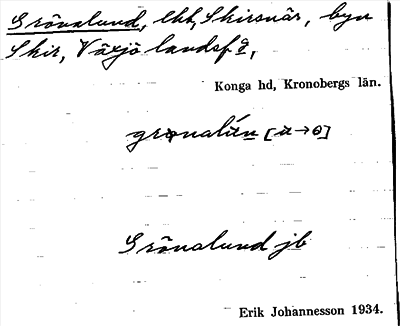 Grönalund, lht, Skirsnäs, byn
Skir, Växjö landsf.a,
Konga hd, Kronobergs län.
grønalún [u→ɵ]
Grönalund jb
Erik Johannesson 1934.